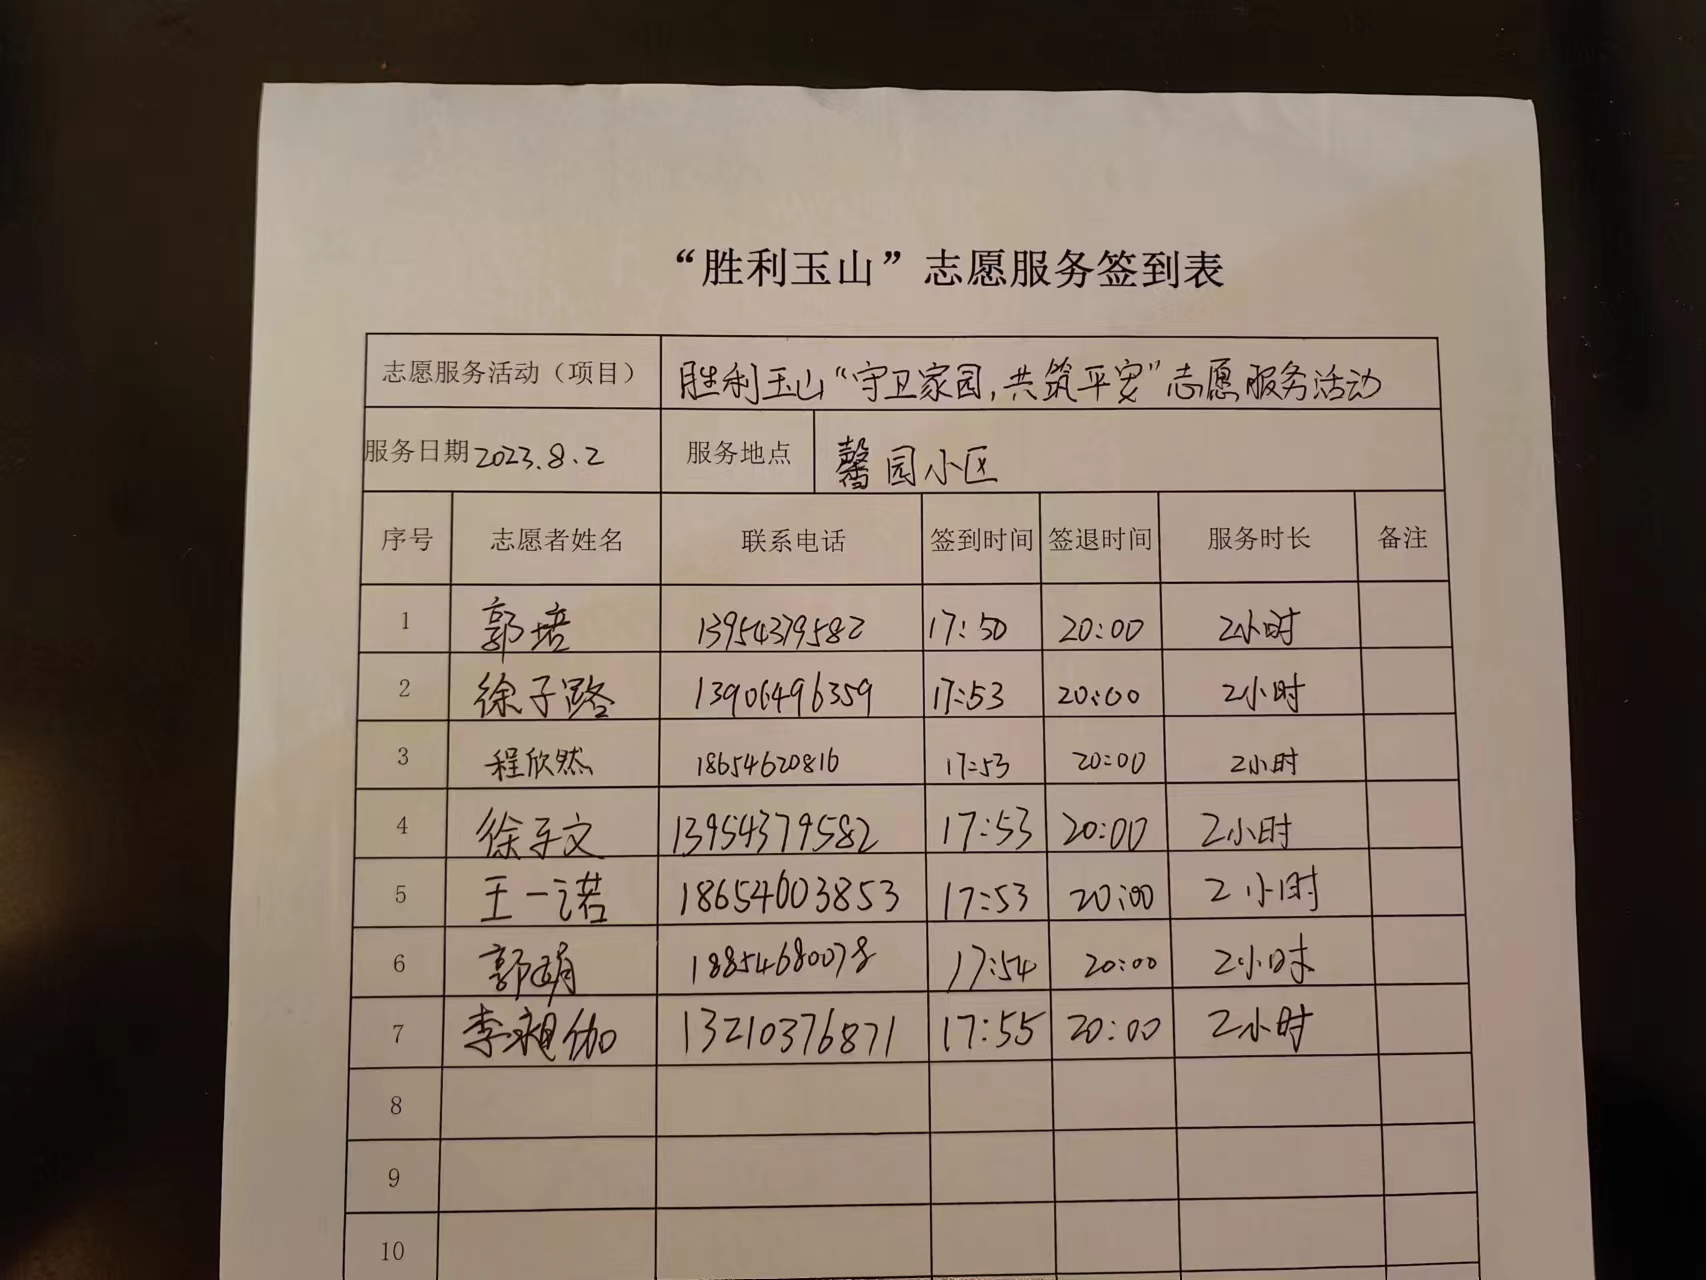 “胜利玉山”志愿服务签到表
志愿服务活动（项目） 胜利玉山“守卫家园，共筑平安”志愿服务活动
服务日期 2023.8.2 服务地点 馨园小区
序号 志愿者姓名 联系电话 签到时间 签退时间 服务时长 备注
1 郭培 13954379582 17:50 20:00 2小时
2 徐子路 13906496359 17:53 20:00 2小时
3 程欣然 18654620816 17:53 20:00 2小时
4 徐子文 13954379582 17:53 20:00 2小时
5 王一诺 18654603853 17:53 20:00 2小时
6 郭 18854680078 17:54 20:00 2小时
7 李 13210376871 17:55 20:00 2小时
8
9
10